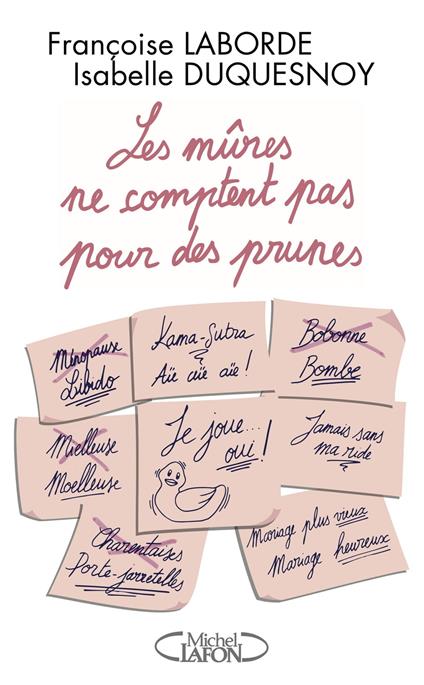 Françoise LABORDE
Isabelle DUQUESNOY
Les mûres
ne comptent pas
pour des prunes
Ménopause
Libido
Kama-Sutra
Aïe aïe aïe !
Bobonne
Bombe
Mielleuse
Moelleuse
Je joue...
oui !
Jamais sans
ma ride
Charentaises
Porte-jarretelles
Mariage plus vieux
Mariage heureux
Michel
LAFON